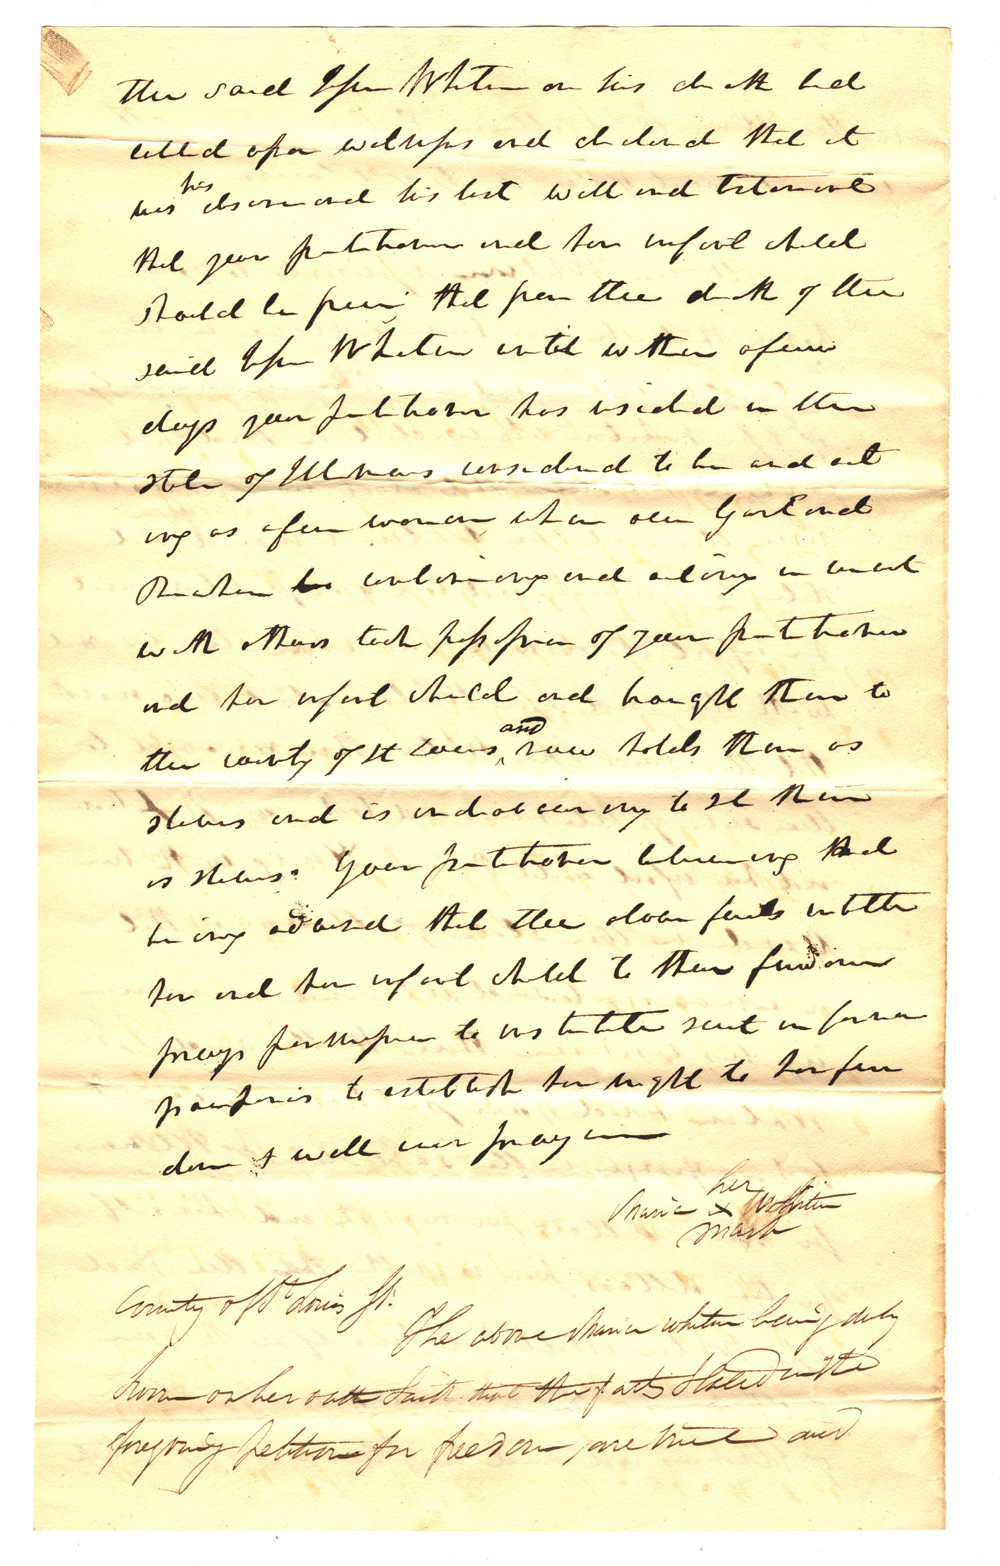 the said Whiten on his death bed
called upon witnesses and declared that it
was his desire and his last will and testament
that your petitioner and her infant child
should be free; that from the death of the
said Whiten until within a few
days your petitioner has resided in the
state of Illinois considered to be and act
ing as a free woman, when one Garland
Rucker contriving and acting in concert
with others took possession of your petitioner
and her infant child and brought them to
the county of St Louis, and now holds them as
slaves and is endeavouring to sel them
as slaves. Your petitioner believing and
being advised that the above facts intitle
her and her infant child to their freedom
prays permission to institute suit in forma
pauperis to establish her right to her free
dom & will ever pray
Maria her x mark Whiten
County of St. Louis Ss.
The above Maria whiten being duly
sworn on her oath Saith that the facts Stated in the
foregoing petition for freedom, are true and